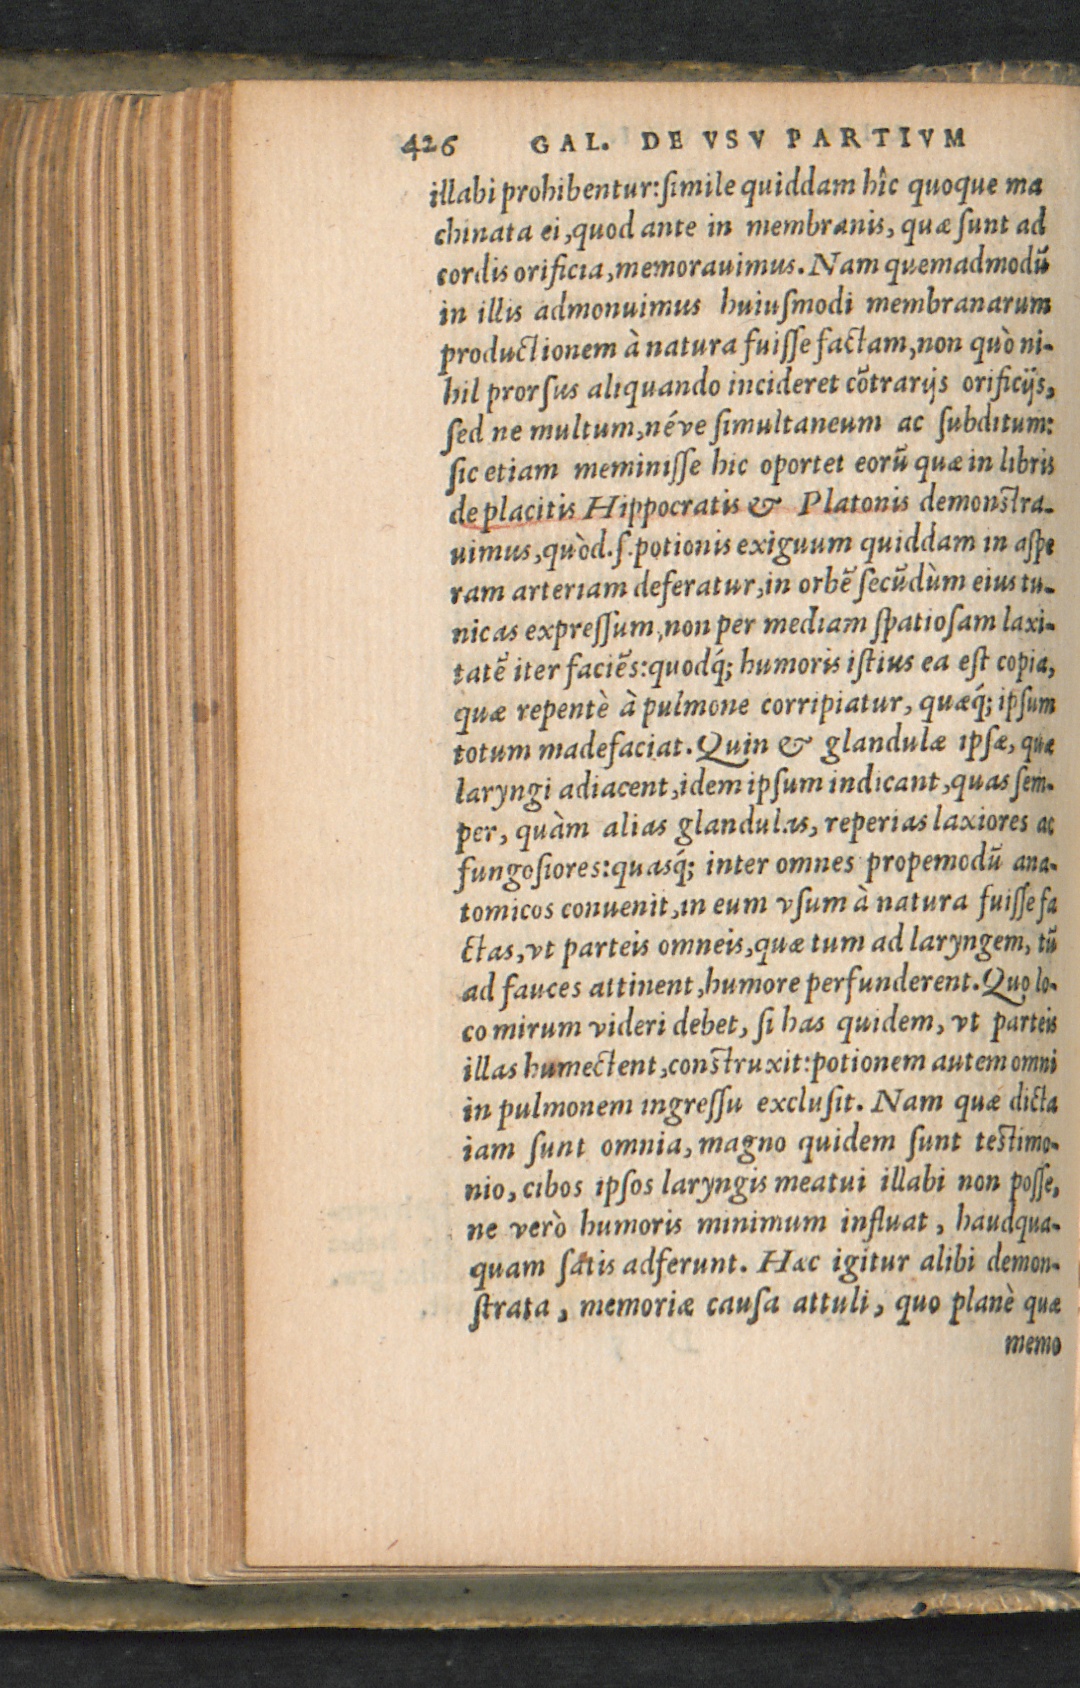 426 GAL. DE VSV PARTIVM
illabi prohibentur: ſimile quiddam hîc quoque ma
chinata ei, quod ante in membranis, quæ ſunt ad
cordis orificia, memorauimus. Nam quemadmodū
in illis admonuimus huiuſmodi membranarum
productionem à natura fuiſſe factam, non quò ni-
hil prorſus aliquando incideret cōtrarijs orificijs,
ſed ne multum, néve ſimultaneum ac ſubditum:
ſic etiam meminiſſe hic oportet eorū quæ in libris
de placitis Hippocratis & Platonis demonſtra-
uimus, quòd. ſ. potionis exiguum quiddam in aſpe
ram arteriam deferatur, in orbē ſecūdùm eius tu-
nicas expreſſum, non per mediam ſpatioſam laxi-
tatē iter faciēs: quodq́; humoris iſtius ea eſt copia,
quæ repentè à pulmone corripiatur, quæq́; ipſum
totum madefaciat. Quin & glandulæ ipſæ, quæ
laryngi adiacent, idem ipſum indicant, quas ſem-
per, quàm alias glandulas, reperias laxiores ac
fungoſiores: quasq́; inter omnes propemodū ana-
tomicos conuenit, in eum vſum à natura fuiſſe fa
ctas, vt parteis omneis, quæ tum ad laryngem, tū
ad fauces attinent, humore perfunderent. Quo lo-
co mirum videri debet, ſi has quidem, vt parteis
illas humectent, conſtruxit: potionem autem omni
in pulmonem ingreſſu excluſit. Nam quæ dicta
iam ſunt omnia, magno quidem ſunt teſtimo-
nio, cibos ipſos laryngis meatui illabi non poſſe,
ne verò humoris minimum influat, haudqua-
quam ſatis adferunt. Hæc igitur alibi demon-
ſtrata, memoriæ cauſa attuli, quo planè quæ
memo